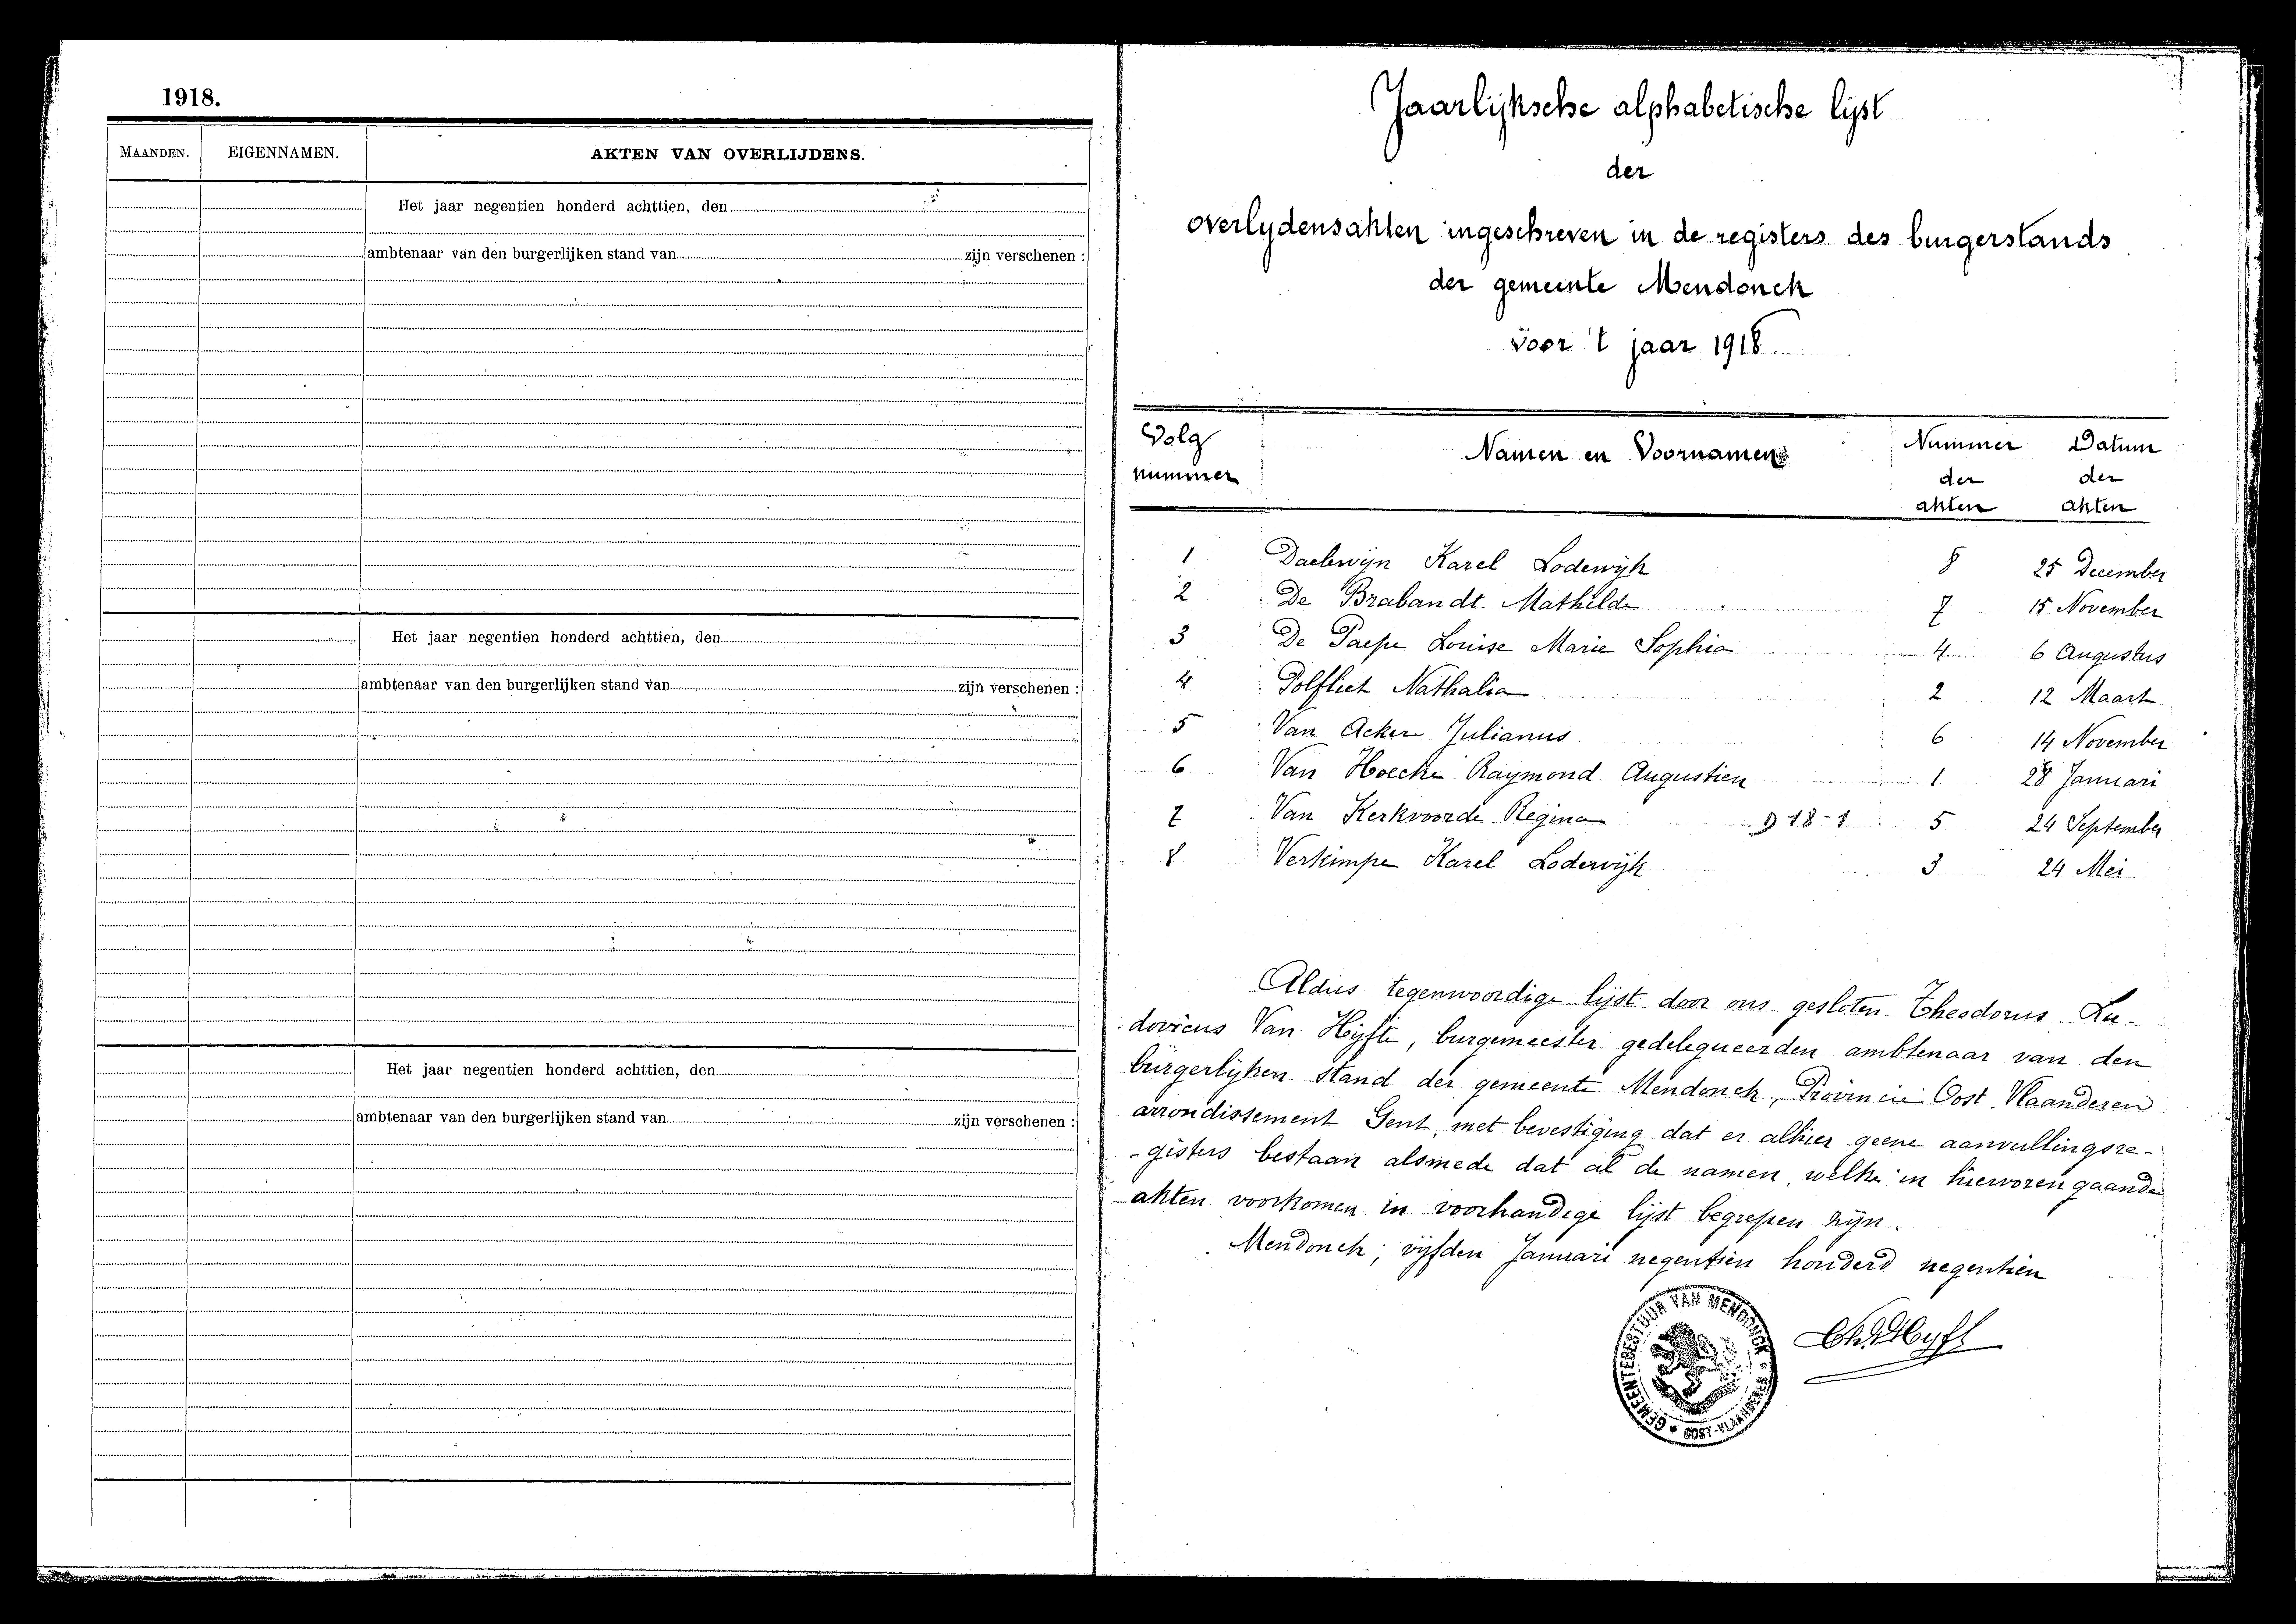 1918.
MAANDEN. EIGENNAMEN. AKTEN VAN OVERLIJDENS.
Het jaar negentien honderd achttien, den
ambtenaar van den burgerlijken stand van zijn verschenen :
Het jaar negentien honderd achttien, den
ambtenaar van den burgerlijken stand van zijn verschenen :
Het jaar negentien honderd achttien, den
ambtenaar van den burgerlijken stand van zijn verschenen :
Jaarlijksche alphabetische lijst
der
overlydensakten ingeschreven in de registers des burgerstands
der gemeente Mendonck
voor 't jaar 1918.
Volg nummer Namen en Voornamen Nummer der akten Datum der akten
1 Daelwijn Karel Lodewijk 8 25 December
2 De Brabandt Mathilde 7 15 November
3 De Paepe Louise Marie Sophia 4 6 Augustus
4 Polfliet Nathalia 2 12 Maart
5 Van Acker Julianus 6 14 November
6 Van Hoecke Raymond Augustien 1 28 Januari
7 Van Kerkvoorde Regina 918-1 5 24 September
8 Verkimpe Karel Lodewijk 3 24 Mei
Aldus tegenwoordige lijst door ons gesloten Theodorus Lu-
dovicus Van Hijfte, burgemeester gedelegueerden ambtenaar van den
burgerlijken stand der gemeente Mendonck, Provincie Oost Vlaanderen
arrondissement Gent, met bevestiging dat er alhier geene aanvullingsre-
-gisters bestaan alsmede dat al de namen welke in hiervoren gaande
akten voorkomen in voorhandige lijst begrepen zijn.
Mendonck, vijfden Januari negentien honderd negentien
GEMEENTEBESTUUR VAN MENDONCK
OOST-VLAANDEREN